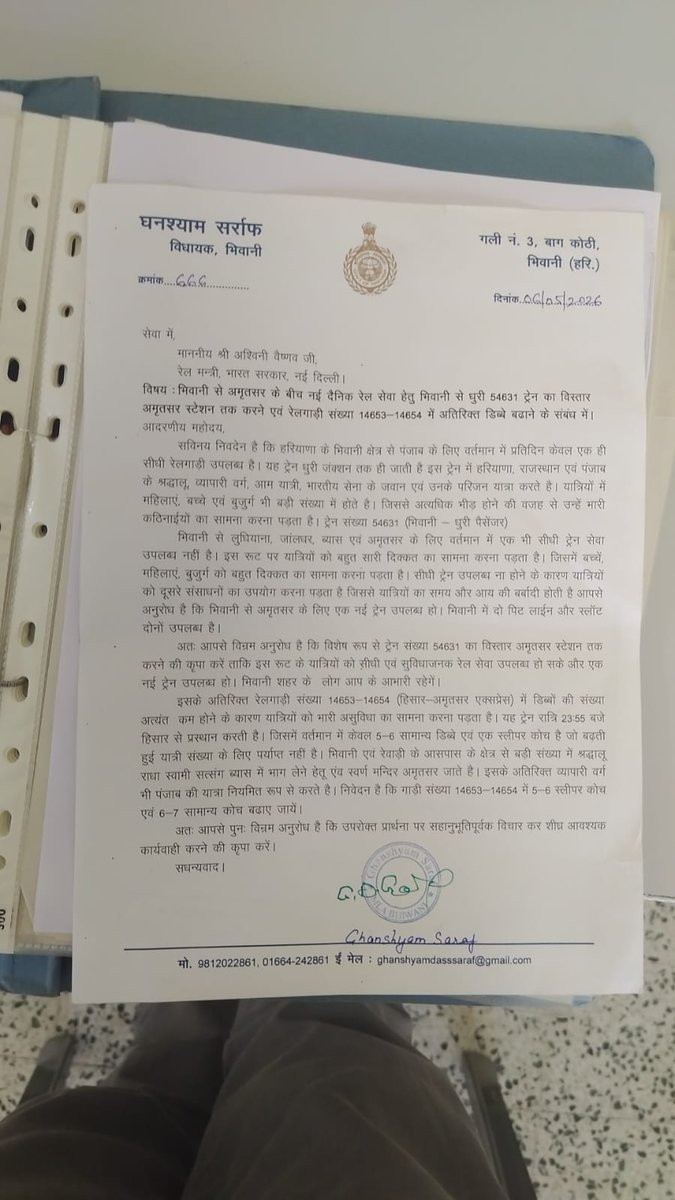 घनश्याम सर्राफ
विधायक, भिवानी
गली नं. 3, बाग कोठी,
भिवानी (हरि.)
क्रमांक....666..............
दिनांक.06/05/2026
सेवा में,
माननीय श्री अश्विनी वैष्णव जी,
रेल मन्त्री, भारत सरकार, नई दिल्ली।
विषय : भिवानी से अमृतसर के बीच नई दैनिक रेल सेवा हेतु भिवानी से धुरी 54631 ट्रेन का विस्तार
अमृतसर स्टेशन तक करने एवं रेलगाड़ी संख्या 14653–14654 में अतिरिक्त डिब्बे बढाने के संबंध में।
आदरणीय महोदय,
सविनय निवदेन है कि हरियाणा के भिवानी क्षेत्र से पंजाब के लिए वर्तमान में प्रतिदिन केवल एक ही
सीधी रेलगाड़ी उपलब्ध है। यह ट्रेन धुरी जंक्शन तक ही जाती है इस ट्रेन में हरियाणा, राजस्थान एवं पंजाब
के श्रद्धालू, व्यापारी वर्ग, आम यात्री, भारतीय सेना के जवान एवं उनके परिजन यात्रा करते है। यात्रियों में
महिलाएं, बच्चे एवं बुजुर्ग भी बड़ी संख्या में होते है। जिससे अत्यधिक भीड़ होने की वजह से उन्हें भारी
कठिनाईयों का सामना करना पड़ता है। ट्रेन संख्या 54631 (भिवानी – धुरी पैसेंजर)
भिवानी से लुधियाना, जांलधर, ब्यास एवं अमृतसर के लिए वर्तमान में एक भी सीधी ट्रेन सेवा
उपलब्ध नहीं है। इस रूट पर यात्रियों को बहुत सारी दिक्कत का सामना करना पड़ता है। जिसमें बच्चें,
महिलाएं, बुजुर्ग को बहुत दिक्कत का सामना करना पड़ता है। सीधी ट्रेन उपलब्ध ना होने के कारण यात्रियों
को दूसरे संसाधनों का उपयोग करना पड़ता है जिससे यात्रियों का समय और आय की बर्बादी होती है आपसे
अनुरोध है कि भिवानी से अमृतसर के लिए एक नई ट्रेन उपलब्ध हो। भिवानी में दो पिट लाईन और स्लॉट
दोनों उपलब्ध है।
अतः आपसे विनम्र अनुरोध है कि विशेष रूप से ट्रेन संख्या 54631 का विस्तार अमृतसर स्टेशन तक
करने की कृपा करें ताकि इस रूट के यात्रियों को सीधी एवं सुविधाजनक रेल सेवा उपलब्ध हो सके और एक
नई ट्रेन उपलब्ध हो। भिवानी शहर के लोग आप के आभारी रहेगें।
इसके अतिरिक्त रेलगाड़ी संख्या 14653–14654 (हिसार–अमृतसर एक्सप्रेस) में डिब्बों की संख्या
अत्यंत कम होने के कारण यात्रियों को भारी असुविधा का सामना करना पड़ता है। यह ट्रेन रात्रि 23:55 बजे
हिसार से प्रस्थान करती है। जिसमें वर्तमान में केवल 5–6 सामान्य डिब्बे एवं एक स्लीपर कोच है जो बढती
हुई यात्री संख्या के लिए पर्याप्त नहीं है। भिवानी एवं रेवाड़ी के आसपास के क्षेत्र से बड़ी संख्या में श्रद्धालू
राधा स्वामी सत्संग ब्यास में भाग लेने हेतू एंव स्वर्ण मन्दिर अमृतसर जाते है। इसके अतिरिक्त व्यापारी वर्ग
भी पंजाब की यात्रा नियमित रूप से करते है। निवेदन है कि गाड़ी संख्या 14653–14654 में 5–6 स्लीपर कोच
एवं 6–7 सामान्य कोच बढाए जायें।
अतः आपसे पुनः विन्रम अनुरोध है कि उपरोक्त प्रार्थना पर सहानुभूतिपूर्वक विचार कर शीध्र आवश्यक
कार्यवाही करने की कृपा करें।
सधन्यवाद।
Ghanshyam Saraf
MLA BHIWANI
Ghanshyam Saraf
मो. 9812022861, 01664-242861 ई मेल : ghanshyamdasssaraf@gmail.com